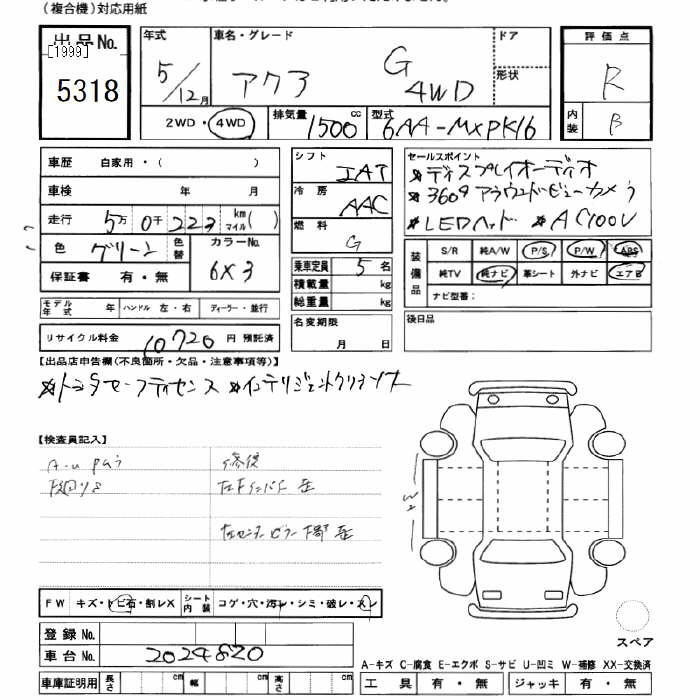 (複合機)対応用紙
出品No. 年式 車名・グレード ドア 評価点
[1999]
5318 5/12月 アクア G 4WD 形状 R
2WD・4WD 排気量 1500 cc 型式 6AA-MXPK16 内装 B
車歴 自家用・( ) シフト IAT セールスポイント
車検 年 月 冷房 AAC ＊ディスプレイオーディオ
走行 5万0千223 km マイル( ) ＊360°アラウンドビューカメラ
色 グリーン 色替 カラーNo. 6X3 燃料 G ＊LEDヘッド ＊AC100V
保証書 有・無 乗車定員 5名 装備品 S/R 純A/W P/S P/W ABS
積載量 kg 純TV 純ナビ 革シート 外ナビ エアB
モデル年式 年 ハンドル 左・右 ディーラー・並行 総重量 kg ナビ型番:
リサイクル料金 10720 円 預託済 名変期限 月 日 後日品
【出品店申告欄(不良箇所・欠品・注意事項等)】
＊トヨタセーフティセンス ＊インテリジェントクリアランス
【検査員記入】
A-u PGう 修復
下廻りS 左FインパF 歪
左センターピラー下部 歪
W2
FW キズ・トビ石・割レX シート内装 コゲ・穴・汚レ・シミ・破レ・スレ
登録No.
車台No. 2024820
スペア
A-キズ C-腐食 E-エクボ S-サビ U-凹ミ W-補修 XX-交換済
車庫証明用 長さ cm 幅 cm 高さ cm 工具 有・無 ジャッキ 有・無